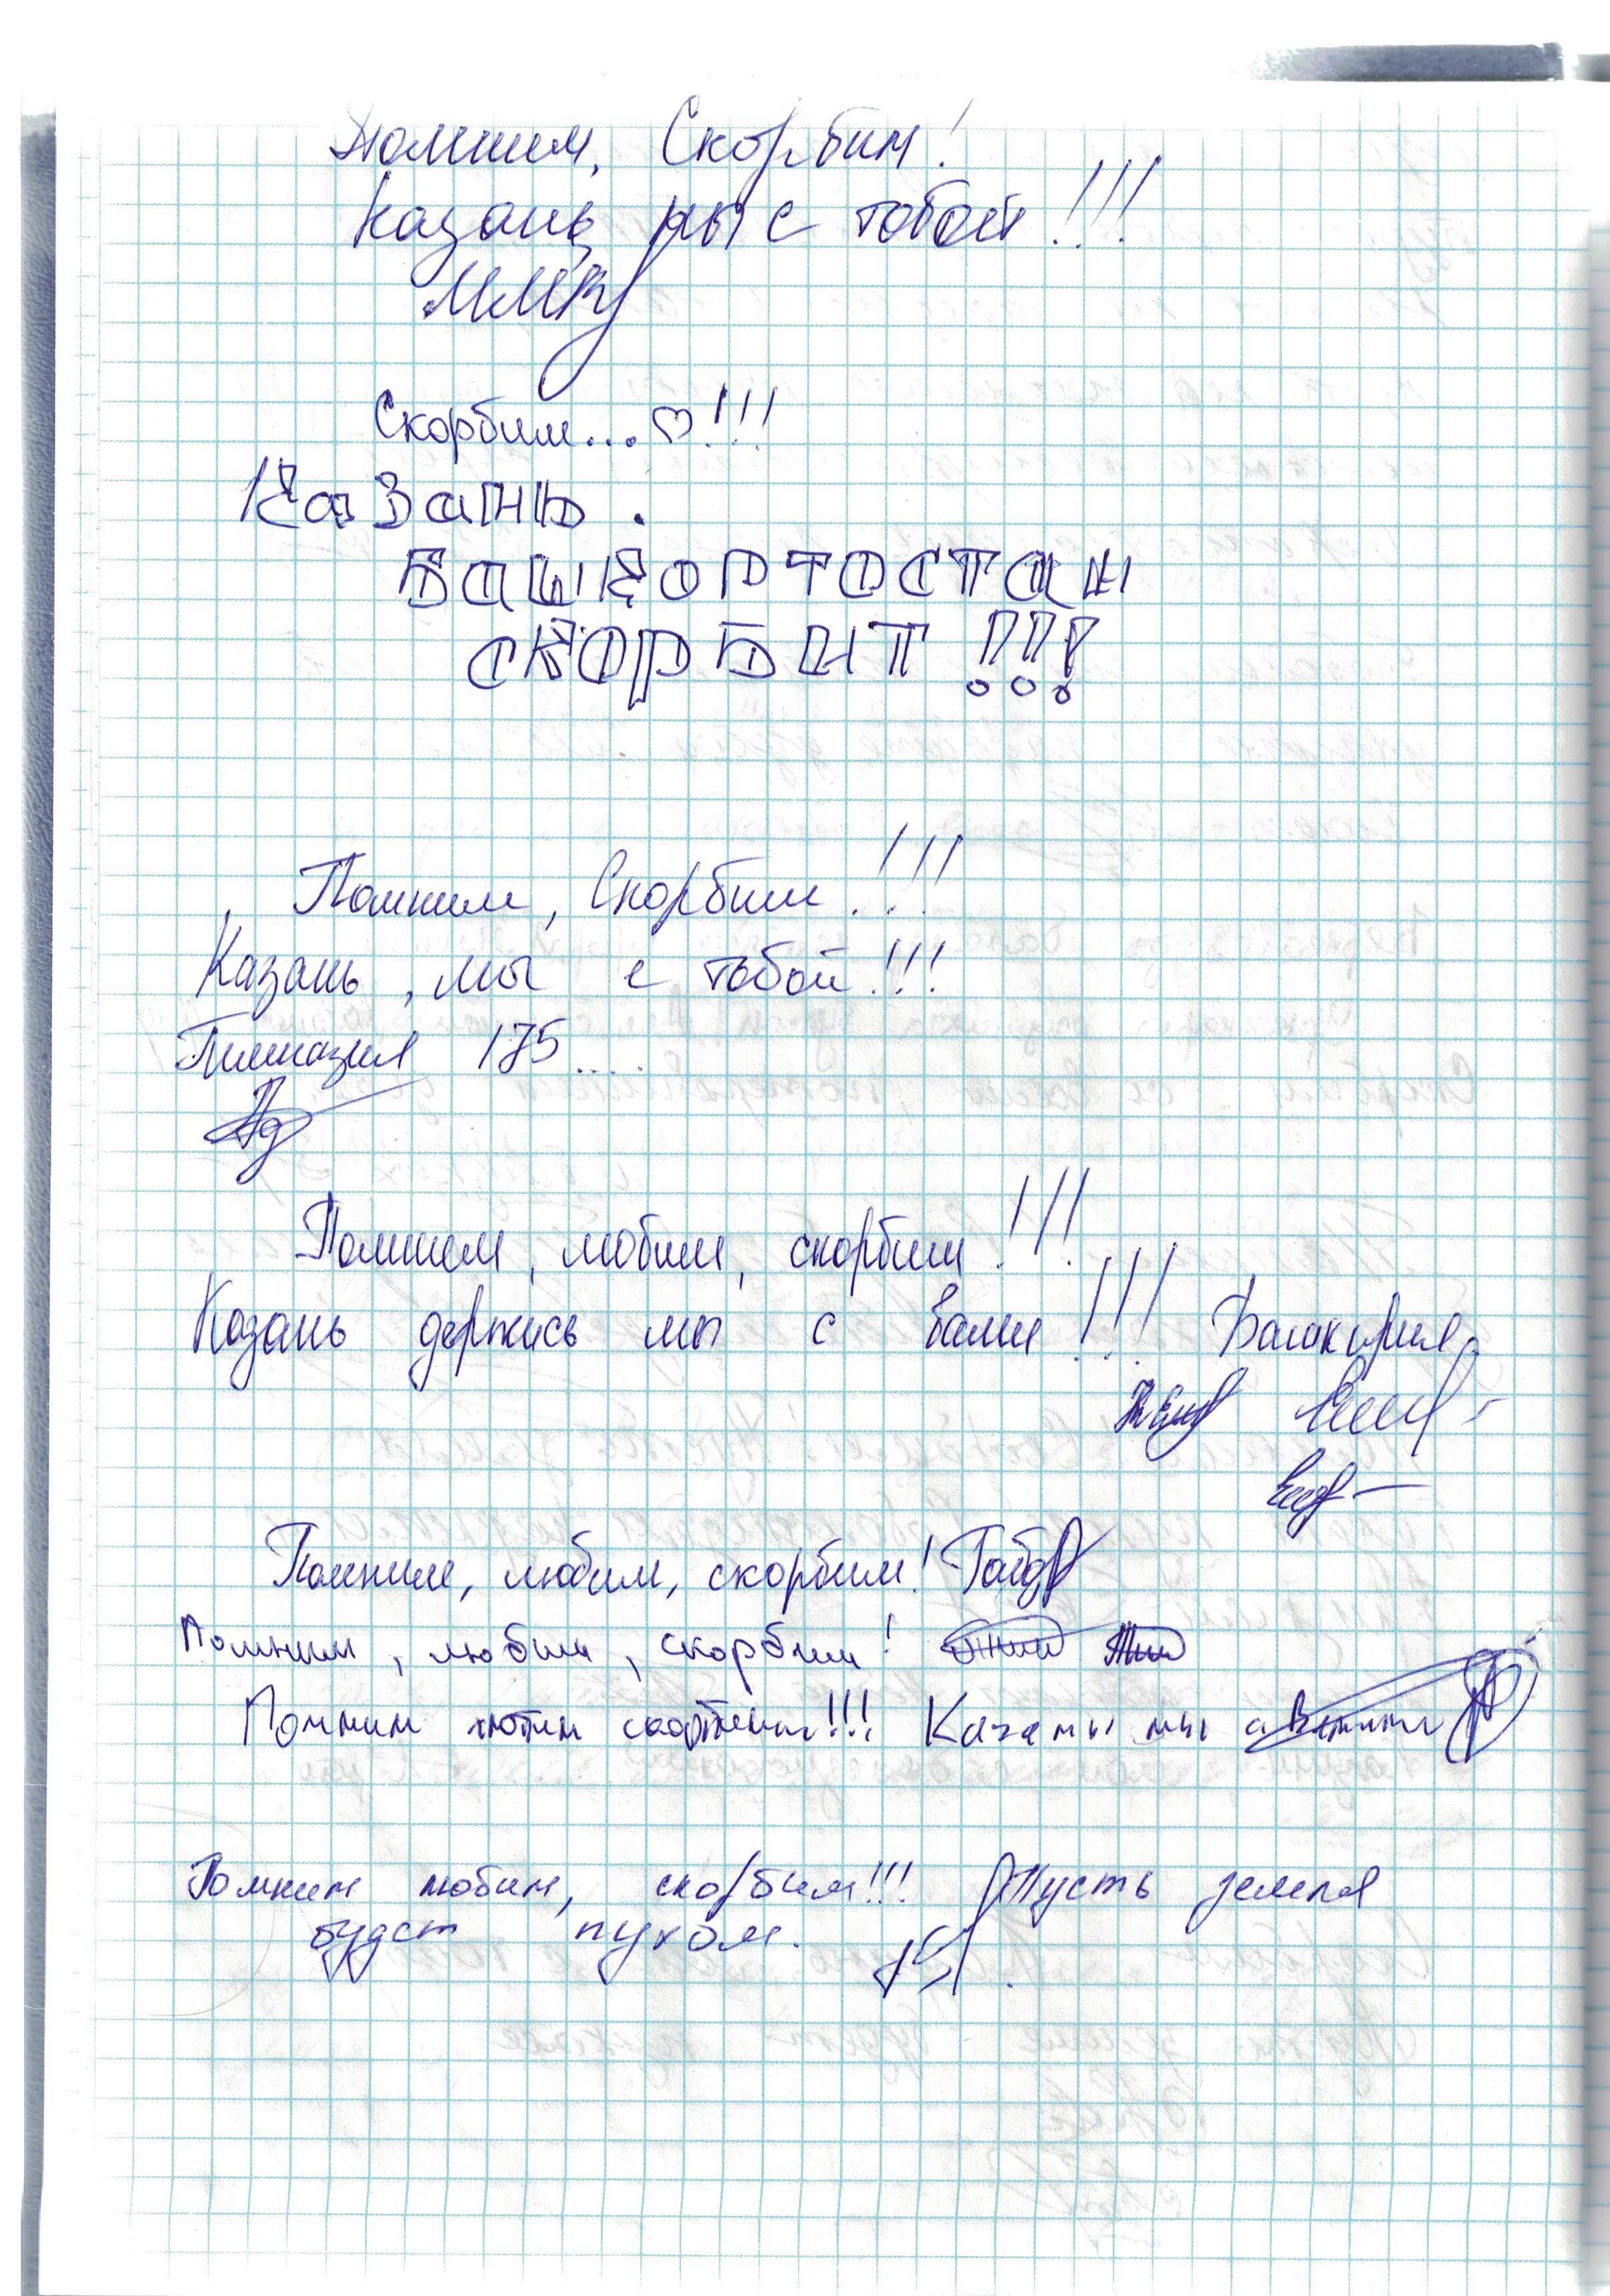 Помним, Скорбим!
Казань, мы с тобой!!!
Скорбим...♡!!!
Казань.
БАШКОРТОСТАН
СКОРБИТ!!!
Помним, Скорбим!!!
Казань, мы с тобой!!!
Гимназия 175....
Помним, любим, скорбим!!!
Казань держись мы с Вами!!! Башкирия.
Помним, любим, скорбим!
Помним, любим, скорбим!
Помним любим скорбим!!! мы с
Помним любим, скорбим!!! Пусть земля
будет пухом.